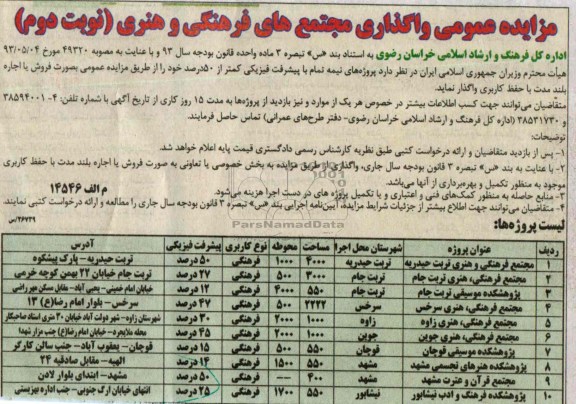 مزایده عمومی واگذاری مجتمع های فرهنگی و هنری (نوبت دوم)
اداره کل فرهنگ و ارشاد اسلامی خراسان رضوی به استناد بند «س» تبصره ۳ ماده واحده قانون بودجه سال ۹۳ و با عنایت به مصوبه ۴۹۳۲۰ مورخ ۹۳/۰۵/۰۴
هیأت محترم وزیران جمهوری اسلامی ایران در نظر دارد پروژه‌های نیمه تمام با پیشرفت فیزیکی کمتر از ۵۰درصد خود را از طریق مزایده عمومی بصورت فروش یا اجاره
بلند مدت با حفظ کاربری واگذار نماید.
متقاضیان می‌توانند جهت کسب اطلاعات بیشتر در خصوص هر یک از موارد و نیز بازدید از پروژه‌ها به مدت ۱۵ روز کاری از تاریخ آگهی با شماره تلفن: ۴- ۳۸۵۹۴۰۰۱
و ۳۸۵۳۱۷۳۰ (اداره کل فرهنگ و ارشاد اسلامی خراسان رضوی- دفتر طرح‌های عمرانی) تماس حاصل فرمایند.
توضیحات:
۱- پس از بازدید متقاضیان و ارائه درخواست کتبی طبق نظریه کارشناس رسمی دادگستری قیمت پایه اعلام خواهد شد.
۲- با عنایت به بند «س» تبصره ۳ قانون بودجه سال جاری، واگذاری از طریق مزایده به بخش خصوصی یا تعاونی به صورت فروش یا اجاره بلند مدت با حفظ کاربری
موجود به منظور تکمیل و بهره‌برداری از آنها می‌باشد.
۳- منابع حاصله به منظور کمک‌های فنی و اعتباری و یا تکمیل پروژه های در دست اجرا هزینه می‌شود.
۴- متقاضیان می‌توانند جهت اطلاع بیشتر از جزئیات شرایط مزایده، آیین‌نامه اجرایی بند «س» تبصره ۳ قانون بودجه سال جاری را مطالعه و ارائه درخواست کتبی نمایند.
م الف ۱۴۵۴۶
۲۶۷۳۹/س
لیست پروژه‌ها:
ردیف عنوان پروژه شهرستان محل اجرا مساحت محوطه نوع کاربری پیشرفت فیزیکی آدرس
۱ مجتمع فرهنگی و هنری تربت حیدریه تربت حیدریه ۴۰۰۰ ۱۰۰۰ فرهنگی ۵۰ درصد تربت حیدریه - پارک پیشکوه
۲ مجتمع فرهنگی، هنری تربت جام تربت جام ۳۰۰۰ ۵۰۰ فرهنگی ۲۷ درصد تربت جام خیابان ۲۲ بهمن کوچه خرمی
۳ پژوهشکده موسیقی تربت جام تربت جام ۵۵۰ ۴۰۰۰ فرهنگی ۱۲ درصد خیابان امام خمینی- یحیی آباد- مقابل مسکن مهر راضی
۴ مجتمع فرهنگی، هنری سرخس سرخس ۲۲۲۲ ۵۰۰ فرهنگی ۴۷ درصد سرخس - بلوار امام رضا(ع) ۱۳
۵ مجتمع فرهنگی، هنری زاوه زاوه ۱۰۰۰ ۲۰۰۰ فرهنگی ۳۰ درصد شهرستان زاوه- شهر دولت آباد خیابان ۳۰ متری استاد صاحبکار
۶ مجتمع فرهنگی، هنری جوین جوین ۱۰۰۰ ۲۰۰۰ فرهنگی ۴۵ درصد محله ملایجرد - خیابان امام رضا(ع) جنب مزار شهدا
۷ پژوهشکده موسیقی قوچان قوچان ۵۵۰ ۵۰۰ فرهنگی ۱۵ درصد قوچان- یعقوب آباد- جنب سالن کارگر
۸ پژوهشکده هنرهای تجسمی مشهد مشهد ۵۵۰ ۱۵۰۰ فرهنگی ۱۴ درصد الهیه - مقابل صادقیه ۲۴
۹ مجتمع قرآن و عترت مشهد مشهد ۴۰۰ --- فرهنگی ۵۰ درصد مشهد- ابتدای بلوار لادن
۱۰ پژوهشکده فرهنگ و ادب نیشابور نیشابور ۵۵۰ ۱۷۰۰ فرهنگی ۲۵ درصد انتهای خیابان ارگ جنوبی- جنب اداره بهزیستی
ParsNamadData